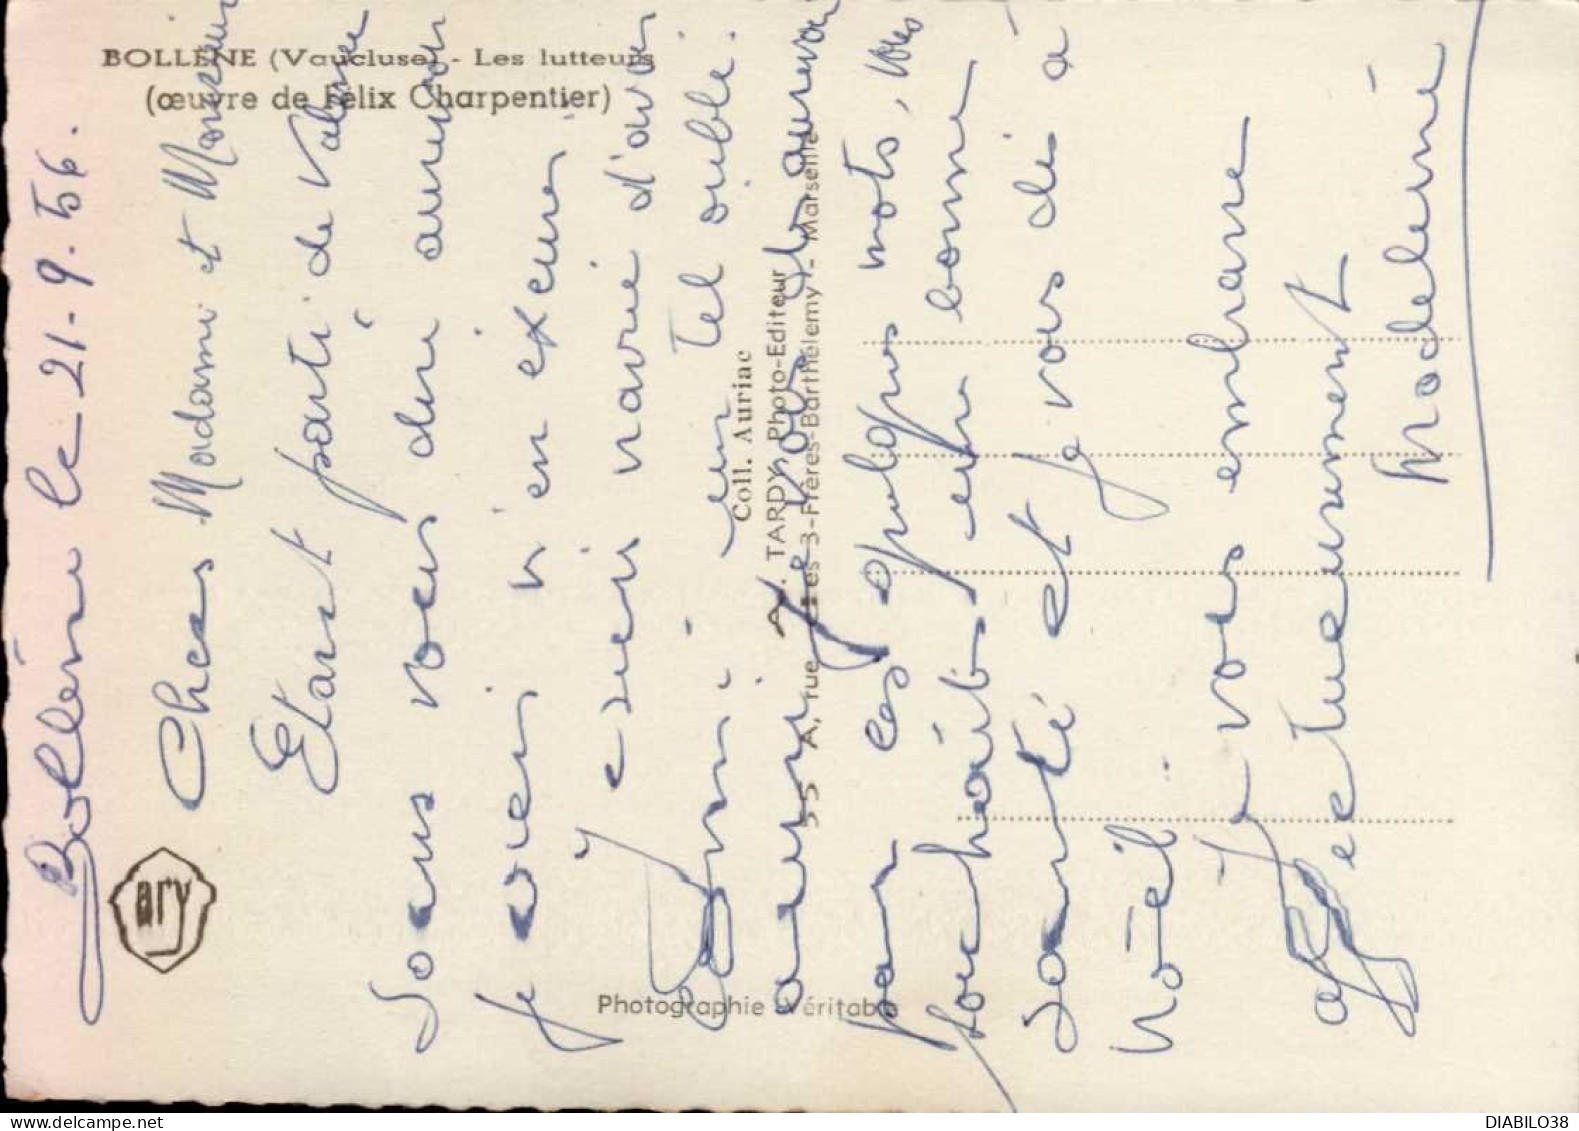 BOLLÈNE (Vaucluse) - Les lutteurs
(œuvre de Félix Charpentier)
ary
Photographie Véritable
Coll. Auriac
A. TARDY Photo-Editeur
35 A, rue des 3-Frères-Barthélemy - Marseille
Bollène le 21-9-56.
Chers Madame et Monsieur
Etant parti de Valence
sans vous dire aurevoir
je viens m'en excuser
je suis navrée d'avoir
commi un tel oublie.
aussi je vous dis aurevoir
par ces quelques mots, vous
souhaits une bonne
santé et je vous dis à
Noël.
Je vous embrasse
affectueusement
Madeleine
DIABILO38